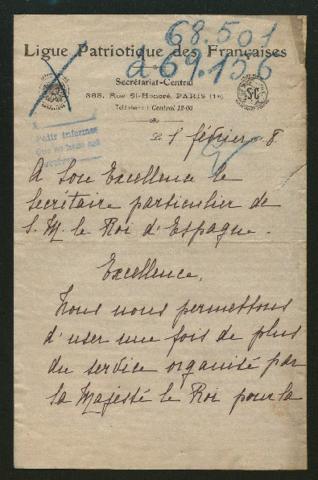 68.501
a 69.156
Ligue Patriotique des Françaises
Secrétariat-Central
368, Rue St-Honoré, PARIS (1er)
Téléphone : Central 12-00
février 8
A Son Excellence le
Secrétaire particulier de
S. M. le Roi d'Espagne.
Excellence,
Nous nous permettons
d'user une fois de plus
du service organisé par
Sa Majesté le Roi pour la